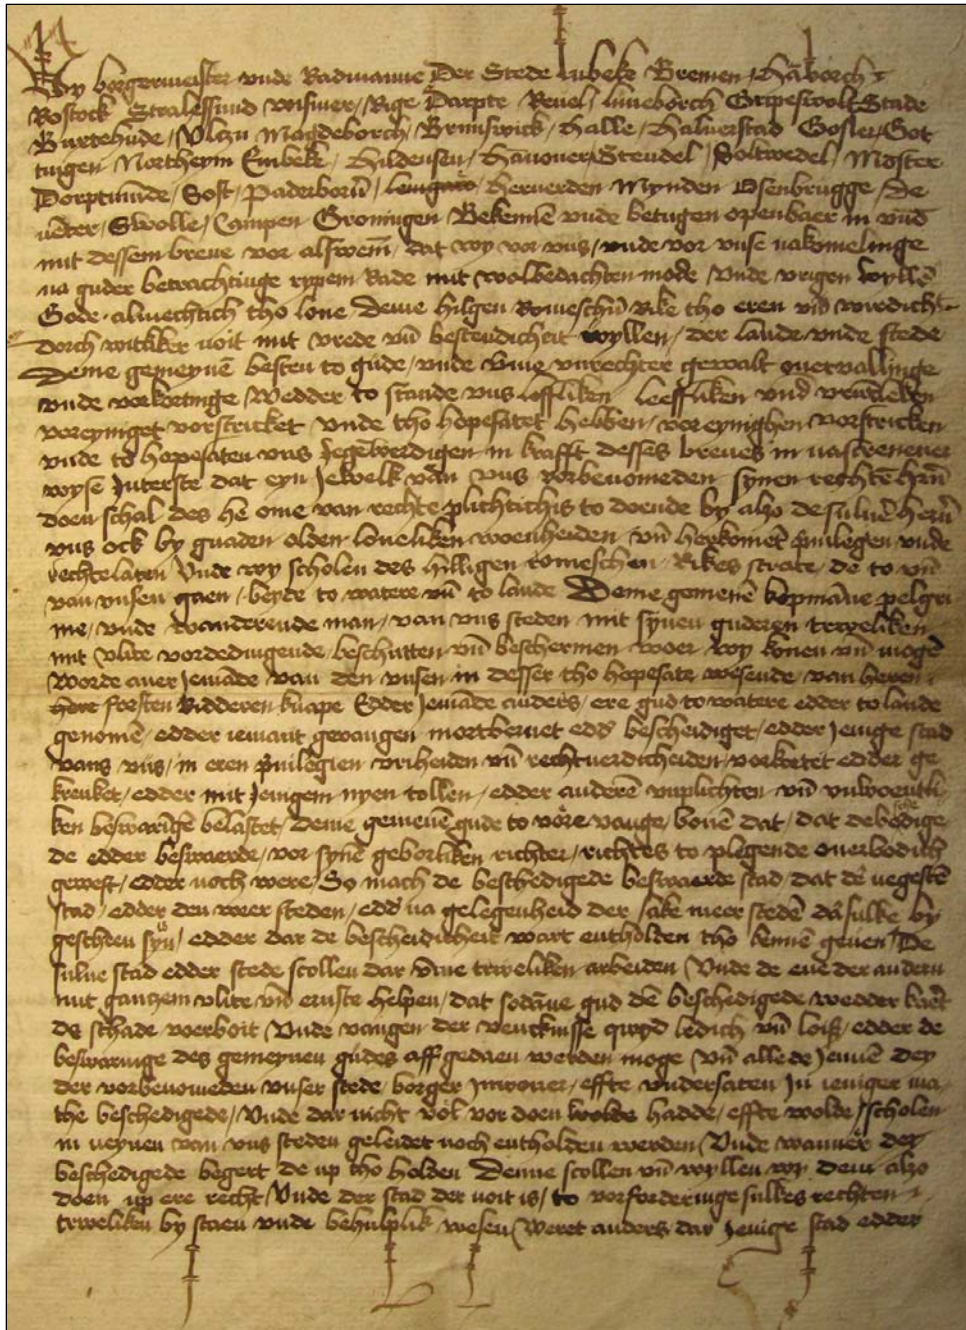 Wy borgermeister vnde Radmanne Der Stede lubeke Bremen / Hāborch
Rostock Stralessund wismer / Rige Darpte Reuel / luneborch Gripeswolt Stade
Buxtehude / Vlzn Magdeborch / Brunswick / Halle / Haluerstad Gosler / Got
tingen Northeym Embeke / Hildensen / Hānouer / Stendel / Soltwedel / Mōster
Dorptmūde / Sost / Paderborn̄ / heruerden Mynden Osenbrugge / De
uēter / Swolle / Campen Groningen Bekennē vnde betugen openbaer in vnd̄
mit dessem breue vor alsweem̄ / dat wy vor vns / vnde vor vnse nakomelinge
na guder betrachtinge rypem Rade mit wolbedachten mode vnde vrigen wyllē
Gode almechtich tho loue Deme hilgen Romeschn̄ Rike tho eren vn̄ wirdich
dorch noit mit vrede vn̄ bestendicheit wyllen / der lande vnde stede
deme gemeynē besten to gude / vnde vnrechter gewalt ouervallinge
vnde vorkortinge wedder to stande vns loffliken leeffliken vnd̄
voreyniget vorstricket vnde tho hopesatet hebben / voreynighen vorstricken
vnde to hopesaten vns Jegēwerdigen in krafft desses breues in nascreuener
wyse Interste dat eyn Jewelk van vns vorbenomeden synen rechtē hrn̄
doen schal des hē ome van rechte plichtich is to doende by alzo de suluē hern̄
vns ock by gnaden olden loueliken woenheiden vn̄ herkomēt priuilegen vnde
rechte laten vnde wy scholen des hilligen romeschen Rikes strate / de to vn̄
van vnsen gaen / beyde to watere vn̄ to lande Deme gemenē kopmāne pelgri
me / vnde wanderende man / van vns steden mit synen guderen truweliken
mit vlite vordedingende / beschutten vn̄ beschermen woer wy konen vn̄ mogē
Worde auer Jemāde van den vnsen in desser tho hopesate wesende / van heren
forsten Ridderen knape Edder Jemāde anders / ere gud to watere edder to lande
genomē / edder iemant geuangen mortbernet edd̄ bescheidiget / edder Jenige stad
vans vns / in eren priuilegien vriheiden vn̄ rechtuerdicheiden / vorkortet edder ge
krenket / edder mit Jenigem nyen tollen / edder anderē vnplichten vn̄ vnwoentli
ken beswaringe belastet / deme gemenē gude to vōre vange / bouē dat / dat de
de edder beswaerde / vor synē geborliken richter / richtes to plegende ouerbodich
gewest / edder noch were / So mach de beschedigede beswaerde stad / dat dē negestē
stad / edder den twier steden / edd̄ na gelegenheid der sake meer stedē dā sulke by
gescheen syn̄ / edder dar de bescheidicheit wart entholden tho kennē geuen De
sulue stad edder stede scollen dar vmme truweliken arbeiden vnde de ene der andern
mit gantzem vlite vn̄ ernste helpen / dat sodāne gud dē beschedigede wedder kaert
de schade verboit vnde vangen der venckinsse qwyd ledich vn̄ loiß / edder de
beswaringe des gemeynen gudes aff gedaen werden moge vn̄ alle de Jennē dey
der vorbenomeden vnser stede / borger Inwoner / effte vndersaten In ieniger ma
the beschedigede / vnde dar nicht vol vor doen hadde / effte wolde / scholen
in neynen van vns steden geleidet noch entholden werden vnde wanner dey
beschedigede begert de up tho holden Denne scollen vn̄ wyllen wy dem alzo
doen up ere recht vnde der stad der noit is / to vorforderinge sulkes rechten
truweliken by staen vnde behulplik wesen Weret anders dar Jenige stad edder